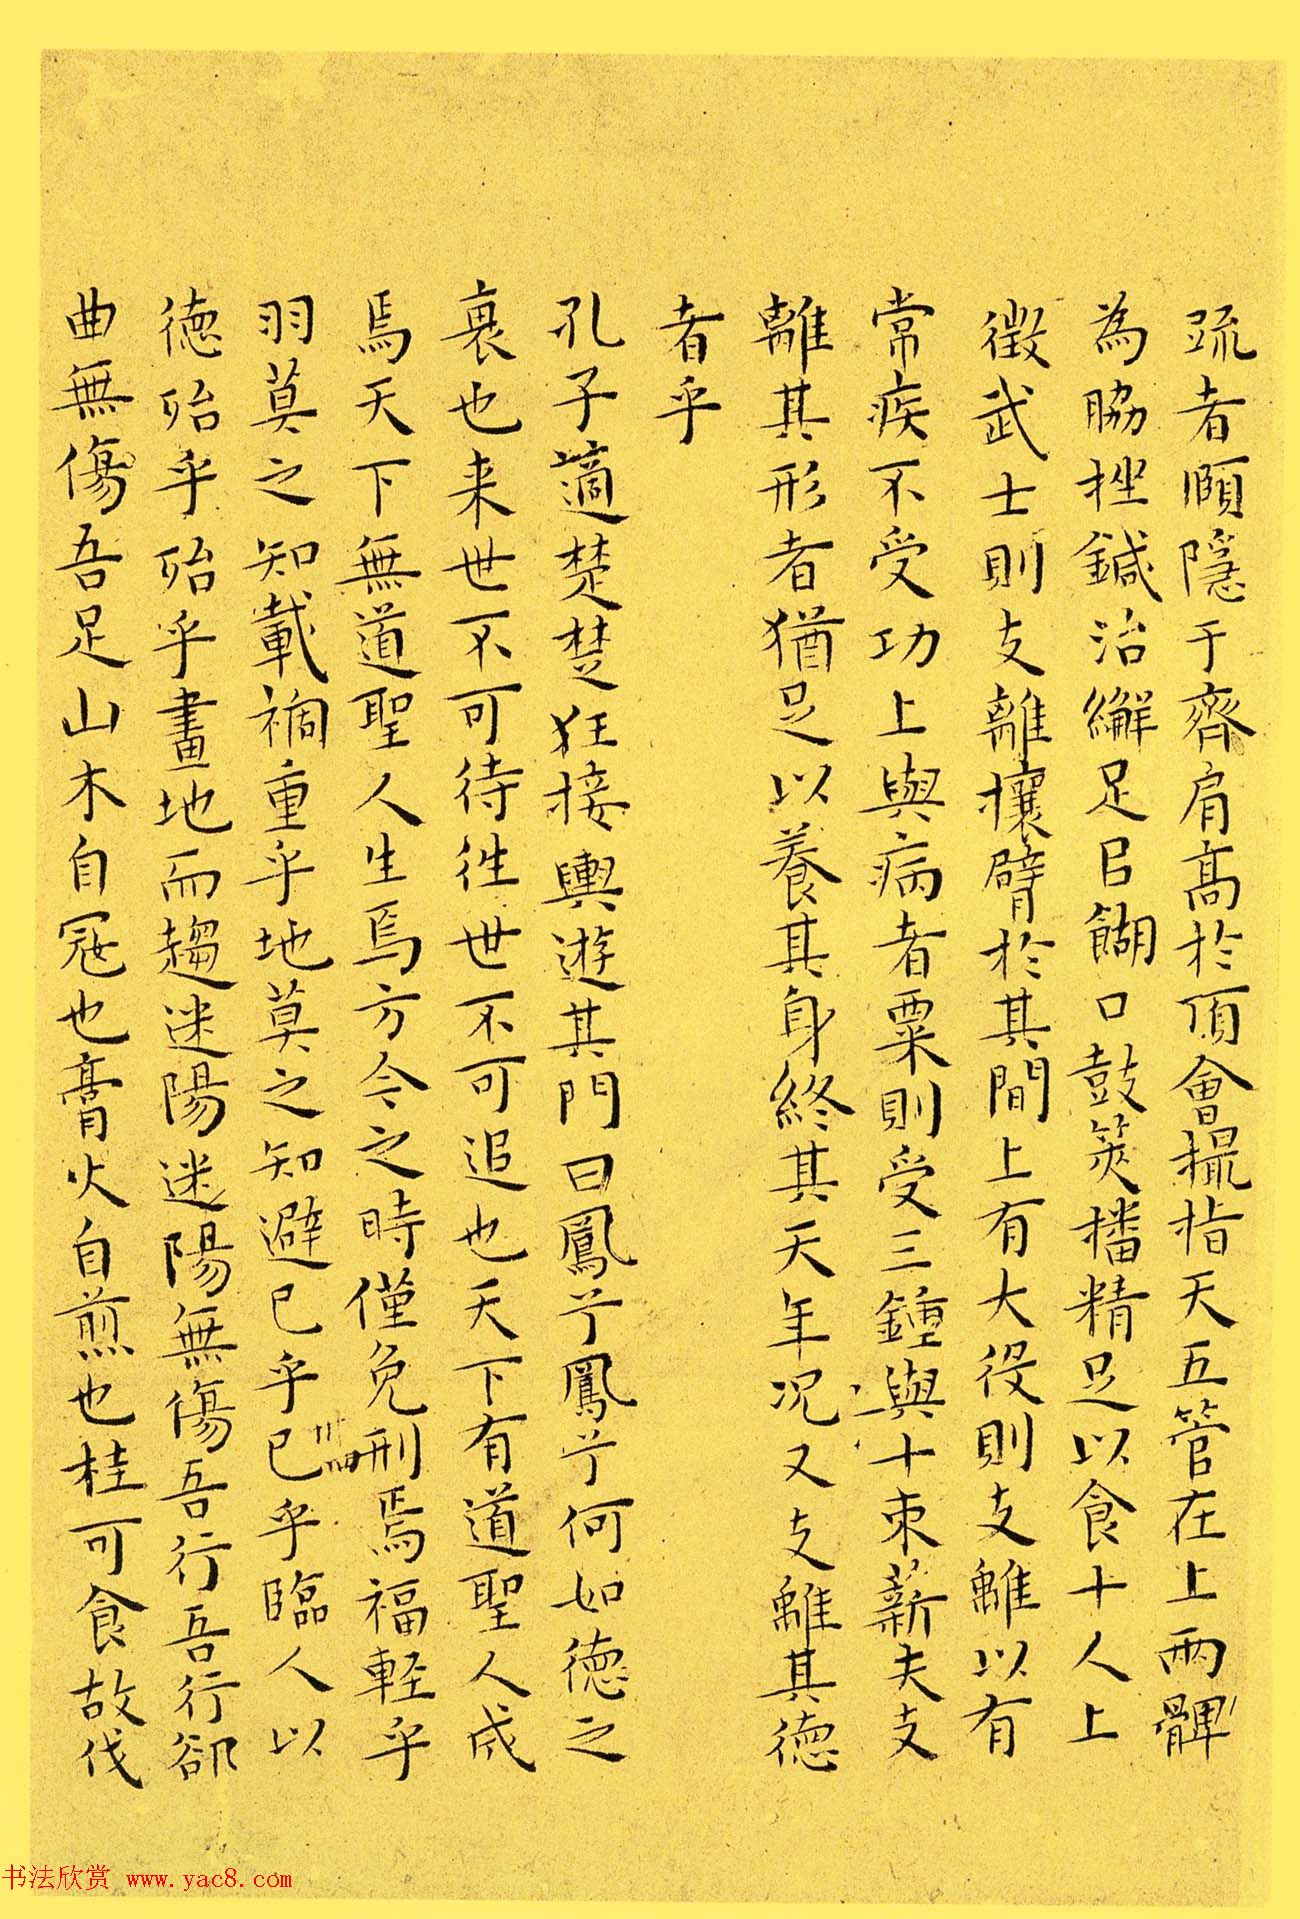 疏者頤隱于齊肩高於頂會撮指天五管在上兩髀
為脇挫鍼治繲足㠯餬口鼓筴播精足以食十人上
徵武士則支離攘臂於其間上有大役則支離以有
常疾不受功上與病者粟則受三鍾與十束薪夫支
離其形者猶足以養其身終其天年況又支離其德
者乎
孔子適楚楚狂接輿遊其門曰鳳兮鳳兮何如德之
衰也来世不可待往世不可追也天下有道聖人成
焉天下無道聖人生焉方今之時僅免刑焉福輕乎
羽莫之知載禍重乎地莫之知避已乎已乎臨人以
德殆乎殆乎畫地而趨迷陽迷陽無傷吾行吾行郤
曲無傷吾足山木自寇也膏火自煎也桂可食故伐
书法欣赏 www.yac8.com